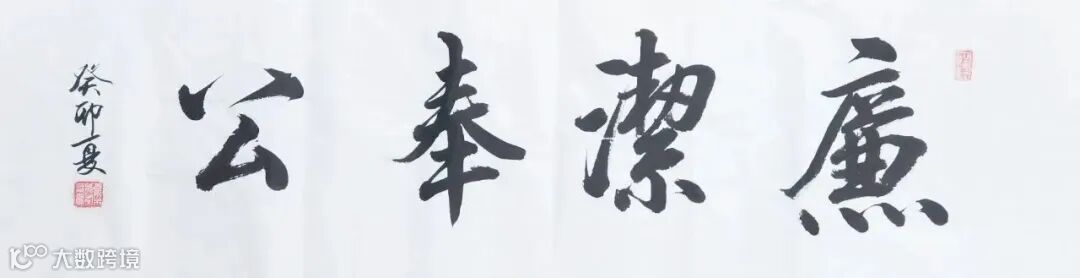 廉潔奉公
癸卯夏
大数跨境